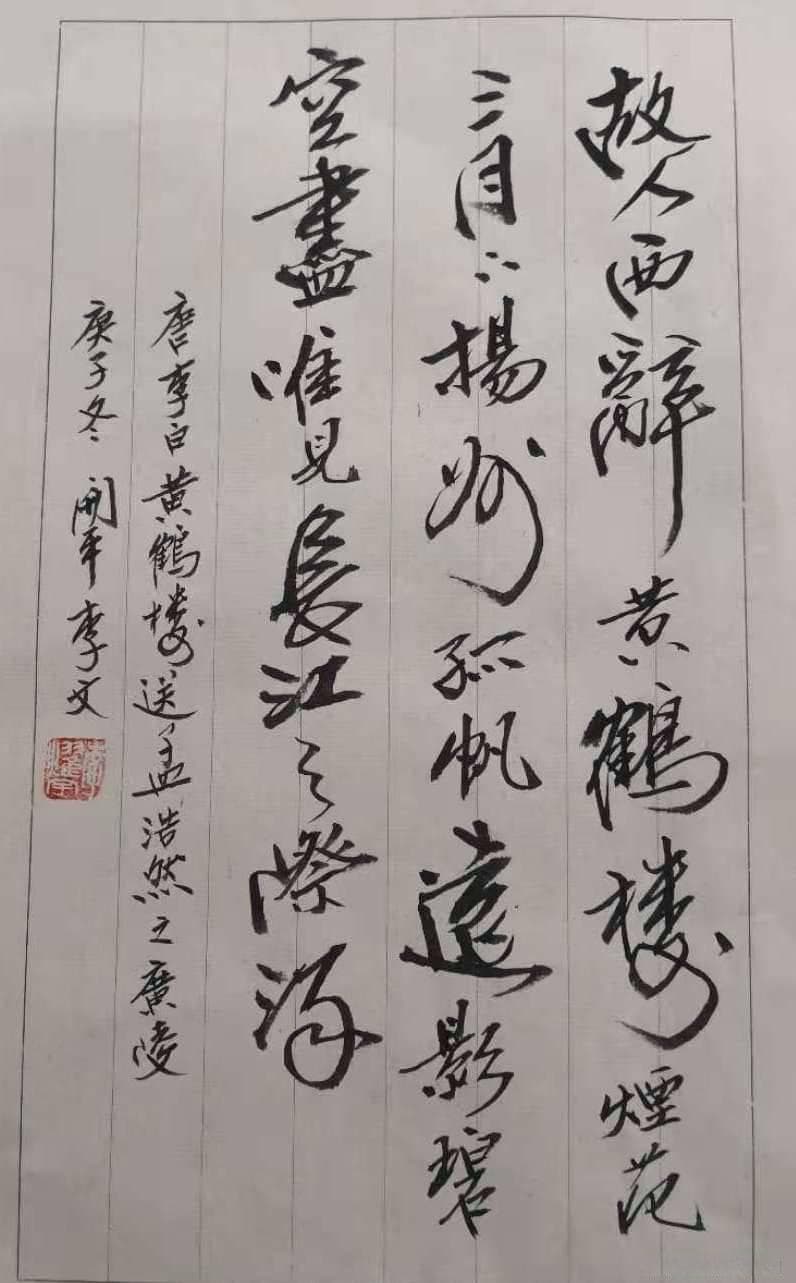 故人西辭黄鶴楼煙花
三月下揚州孤帆遠影碧
空盡唯見長江天際流
唐李白黄鶴楼送孟浩然之廣陵
庚子冬開平李文